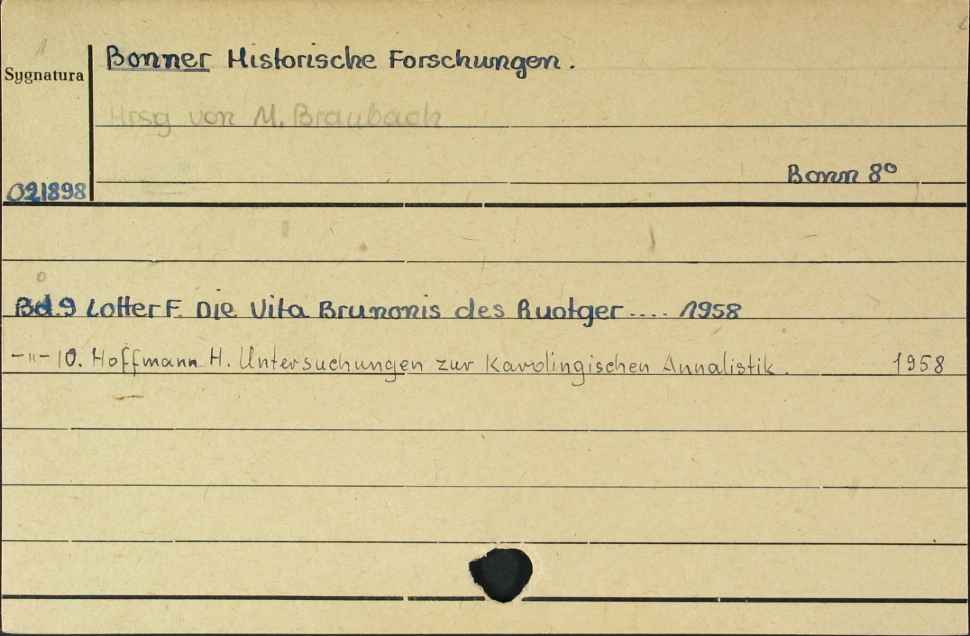 Bonner Historische Forschungen.
Sygnatura
Hrsg von M. Braubach
Bonn 8°
021898
Bd.9 Lotter F. Die Vita Brunonis des Ruotger.... 1958
-"- 10. Hoffmann H. Untersuchungen zur Karolingischen Annalistik. 1958